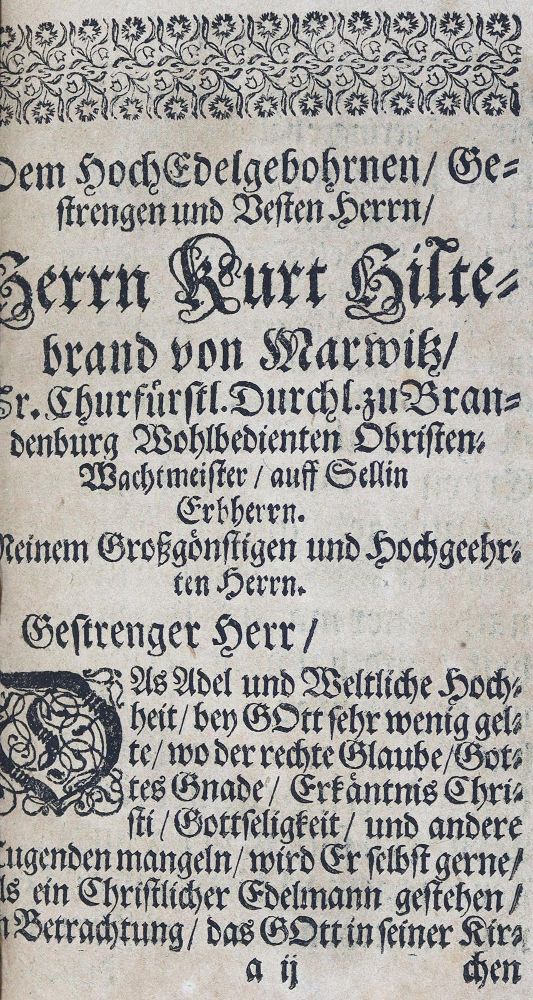 Dem HochEdelgebohrnen/ Ge-
strengen und Vesten Herrn/
Herrn Kurt Hilte-
brand von Marwitz/
Sr. Churfürstl. Durchl. zu Bran-
denburg Wohlbedienten Obristen-
Wachtmeister / auff Sellin
Erbherrn.
Meinem Großgönstigen und Hochgeehr-
ten Herrn.
Gestrenger Herr/
DAs Adel und Weltliche Hoch-
heit/ bey GOtt sehr wenig gel-
te/ wo der rechte Glaube/ Got-
tes Gnade/ Erkäntnis Chri-
sti / Gottseligkeit/ und andere
Tugenden mangeln/ wird Er selbst gerne/
als ein Christlicher Edelmann gestehen /
in Betrachtung/ das GOtt in seiner Kir-
a ij chen